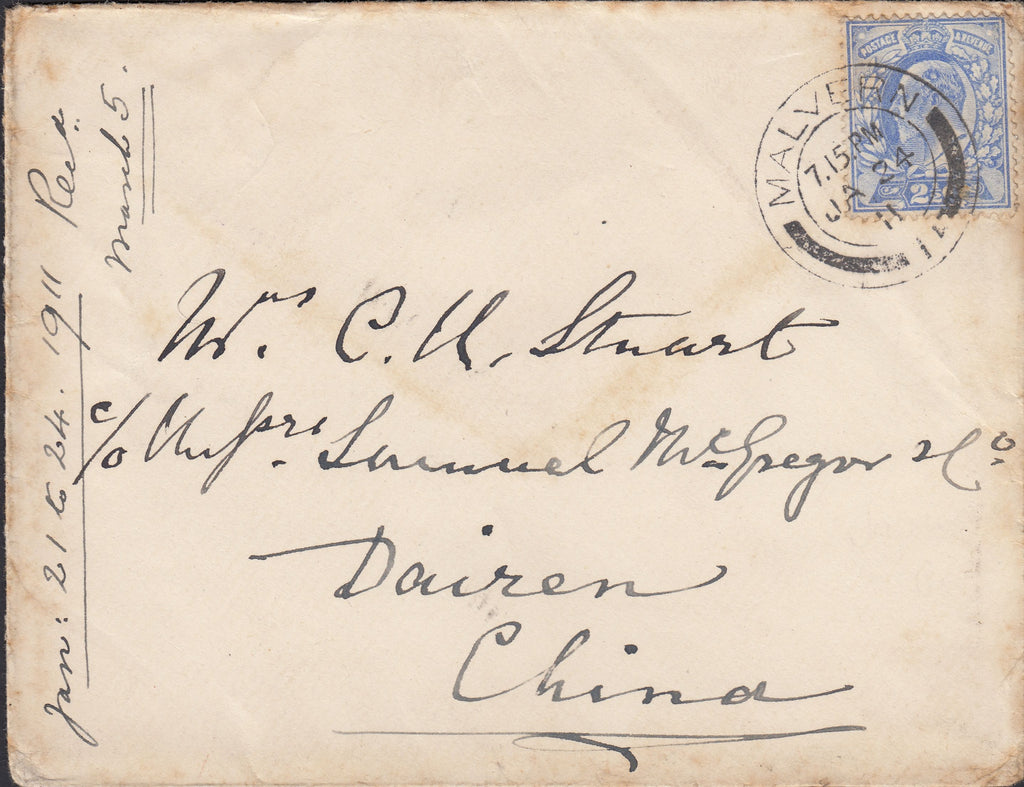 POSTAGE & REVENUE
MALVERN
7.15 PM
JA 24
11
Jan: 21 to 24. 1911 Recd
March 5.
Mrs. C. H. Stuart
c/o Messrs. Samuel McGregor & Co
Dairen
China